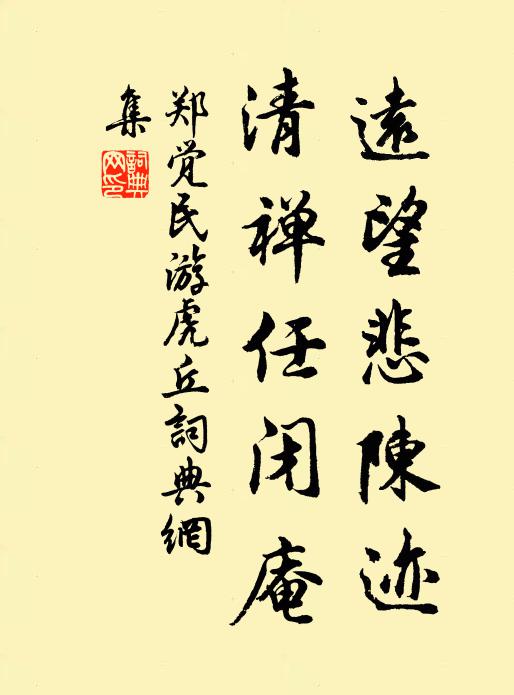 遠望悲陳迹
清禅任闭庵
郑觉民游虎丘詞典網
集
詞典
网印